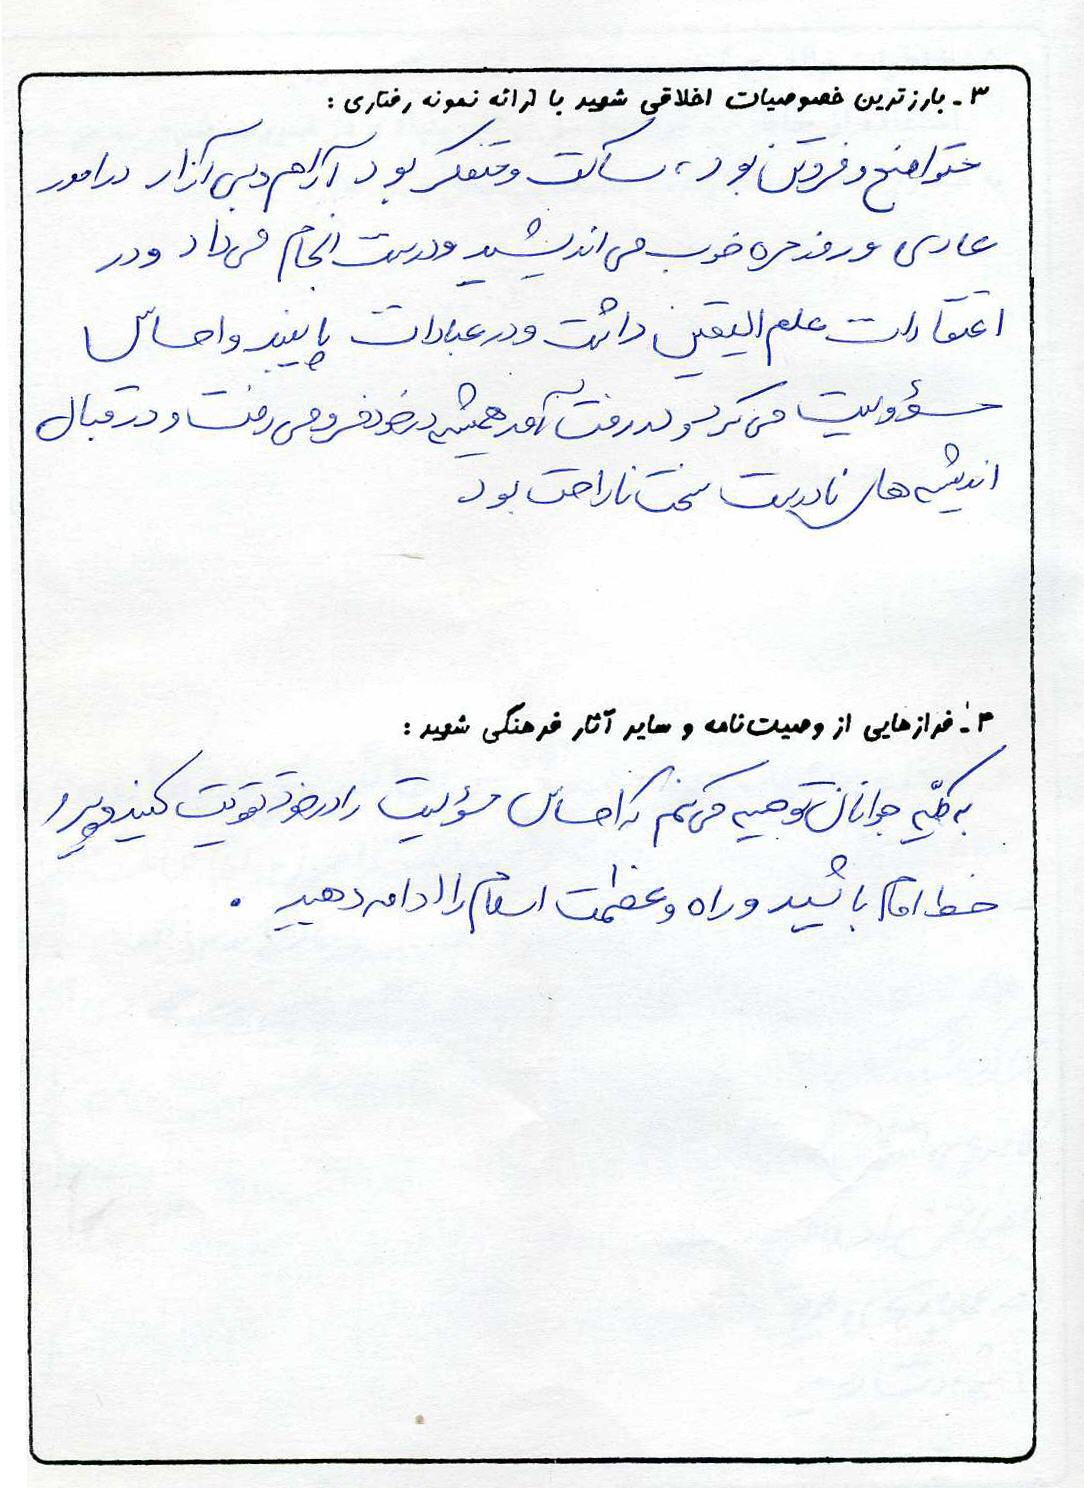 ۳ـ بارزترین خصوصیات اخلاقی شهید با ارائه نمونه رفتاری :
متواضع و فروتن بود، ساکت و متفکر بود آرام و بی آزار در امور
عادی و روزمره خوب می اندیشید و درست انجام می داد و در
اعتقادات علم الیقین داشت و در عبادات پایبند و احساس
مسؤولیت می کرد و در رفت و آمد همیشه در خود فرو می رفت و در قبال
اندیشه های نادرست سخت ناراحت بود
۴ـ فرازهایی از وصیت‌نامه و سایر آثار فرهنگی شهید :
به کلیّه جوانان توصیه می کنم که احساس مسؤلیت را در خود تقویت کنید و پیرو
خط امام باشید و راه و عظمت اسلام را ادامه دهید .